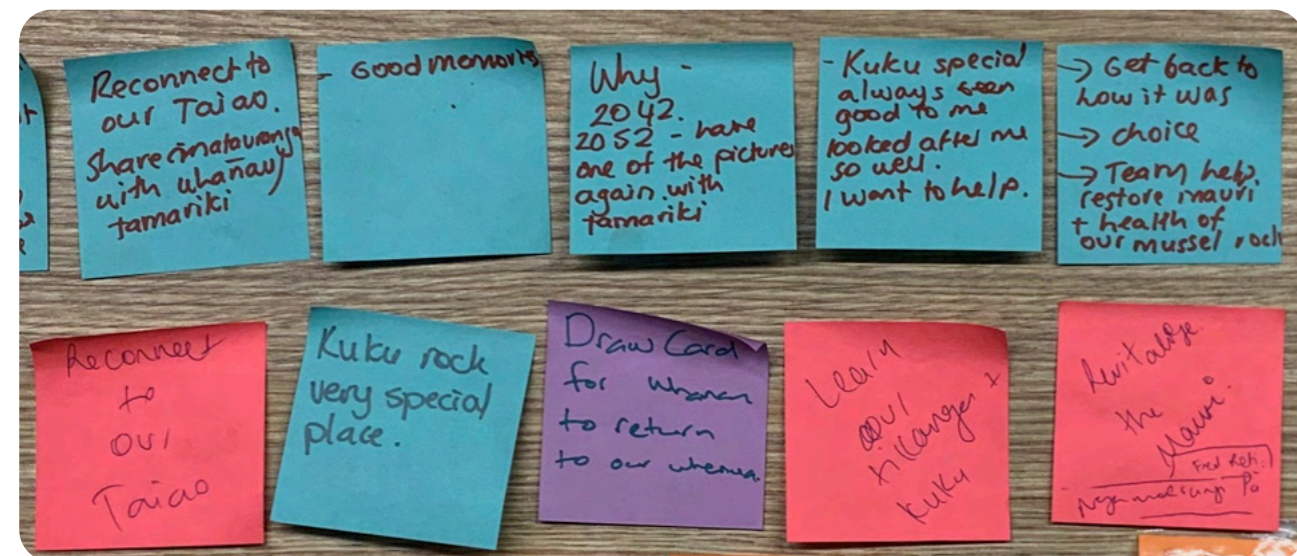 Reconnect to
our Taiao.
Share matauranga
with whānau
tamariki
- Good memories
Why -
2042.
2052 - have
one of the pictures
again with
tamariki
- Kuku special
always been
good to me
looked after me
so well.
I want to help.
→ Get back to
how it was
→ choice
→ Team help.
restore mauri
+ health of
our mussel rock
Reconnect
to
our
Taiao
Kuku rock
very special
place.
Draw Card
for whanau
to return
to our whenua.
Learn
our
tikanga +
kuku
Revitalize
the
Mauri.
Pā